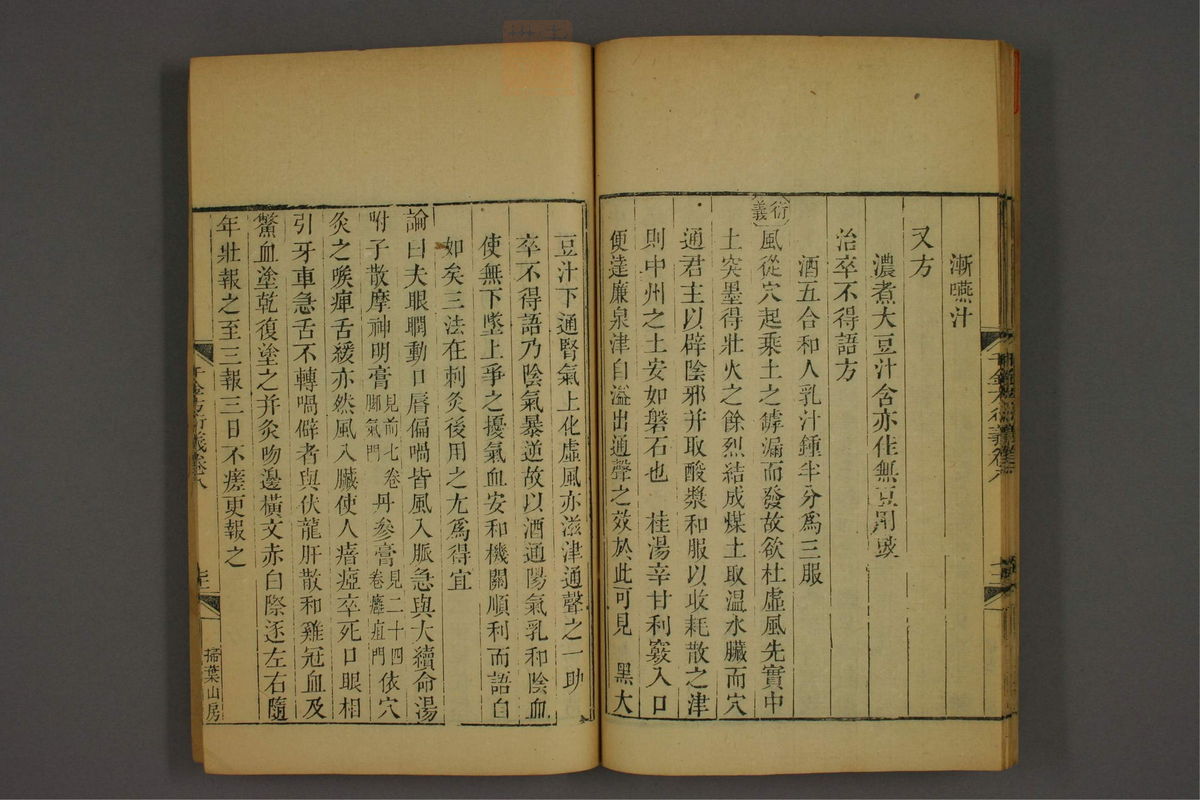 漸嚥汁
又方
濃煮大豆汁含亦佳無豆用豉
治卒不得語方
酒五合和人乳汁鍾半分爲三服
衍義 風從穴起乘土之罅漏而發故欲杜虛風先實中
土突墨得壯火之餘烈結成煤土取温水臟而穴
通君主以辟陰邪并取酸漿和服以收耗散之津
則中州之土安如磐石也 桂湯辛甘利竅入口
便達廉泉津自溢出通聲之效於此可見 黑大
豆汁下通腎氣上化虛風亦滋津通聲之一助
卒不得語乃陰氣暴逆故以酒通陽氣乳和陰血
使無下墜上爭之擾氣血安和機關順利而語自
如矣三法在刺灸後用之尤爲得宜
論曰夫眼瞤動口唇偏喎皆風入脈急與大續命湯
附子散摩神明膏見前七卷脚氣門丹參膏見二十四卷癰疽門依穴
灸之喉痺舌緩亦然風入臟使人瘖瘂卒死口眼相
引牙車急舌不轉喎僻者與伏龍肝散和雞冠血及
鱉血塗乾復塗之并灸吻邊橫文赤白際逐左右隨
年壯報之至三報三日不瘥更報之
千金方衍義卷八
掃葉山房